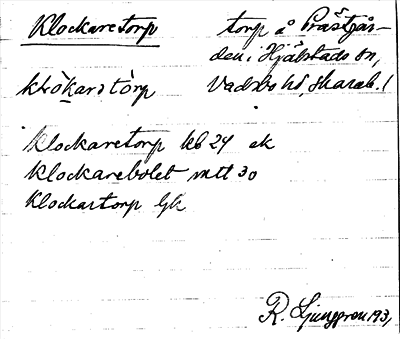 Klockaretorp
torp å Prästgår-
den i Hjälstads sn,
Vadsbo hd, Skarab. l
klòkarstòrp
Klockaretorp kb 24 ek
Klockarebolet mtt 30
Klockartorp Gk
R. Ljunggren 193